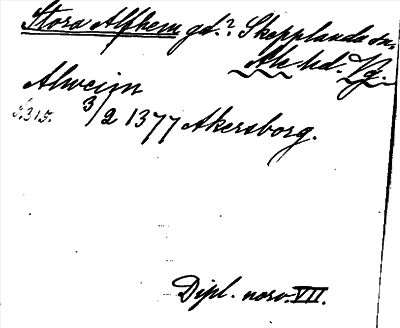 Stora Alfhem gd.? Skepplanda sn.
Ale hd. Vg.
Alweim
s. 315.
3/2 1377 Akersborg.
Dipl. norv. VII.